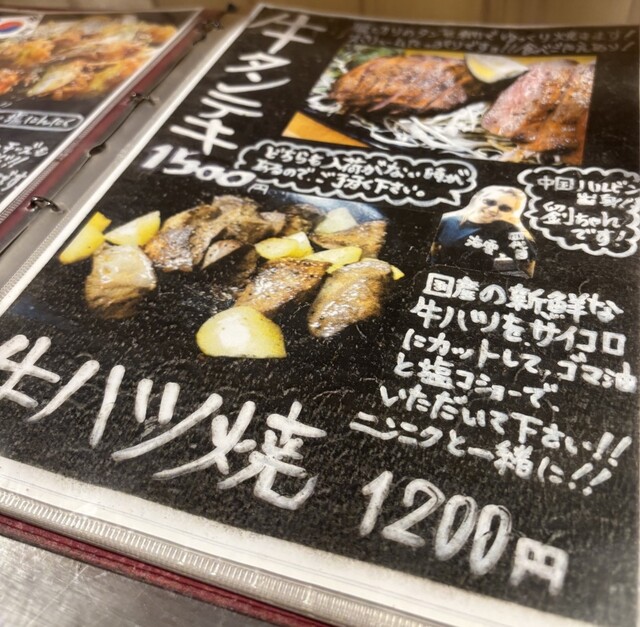 牛タンテキ
1500円
食べごたえあり!
どちらも入荷がない時が
あるので、ご了承下さい。
中国ハルピン
出身!
劉ちゃん
です!
国産の新鮮な
牛ハツを、サイコロ
にカットして、ゴマ油
と塩コショーで、
いただいて下さい!!
ニンニクと一緒に!!
牛ハツ焼
1200円